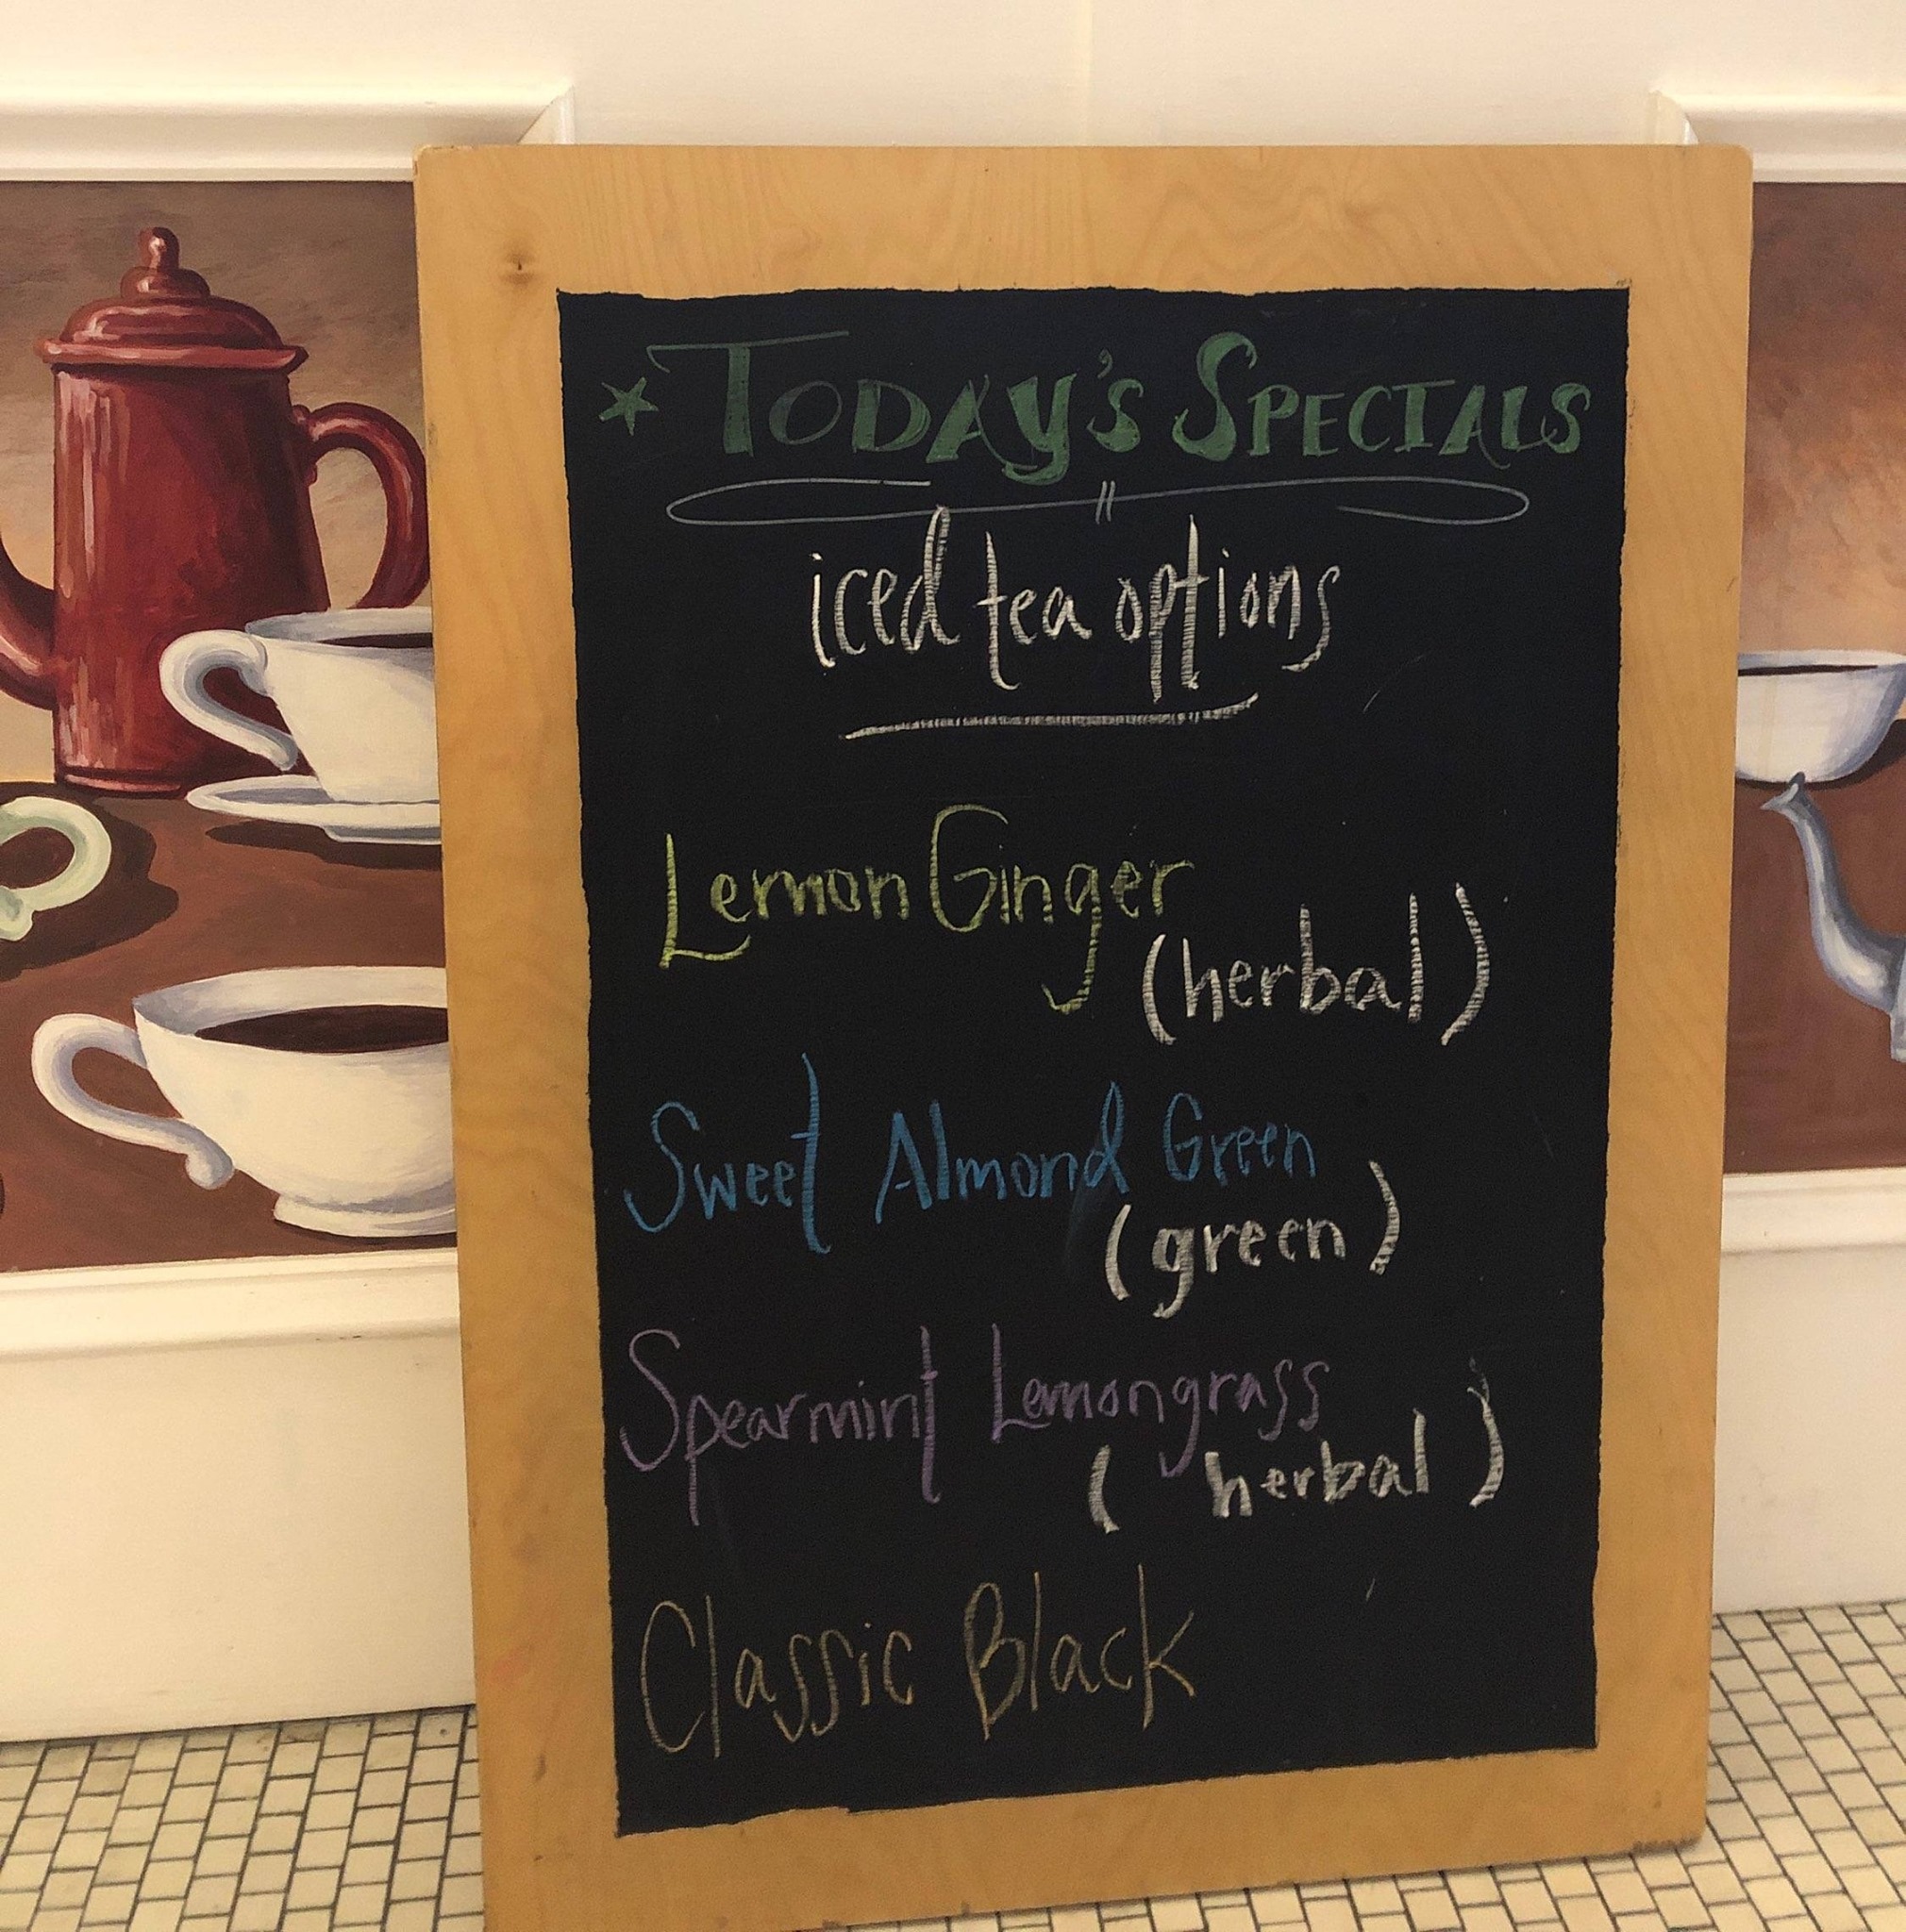 TODAY'S SPECIALS
iced tea options
Lemon Ginger
(herbal)
Sweet Almond Green
(green)
Spearmint Lemongrass
(herbal)
Classic Black